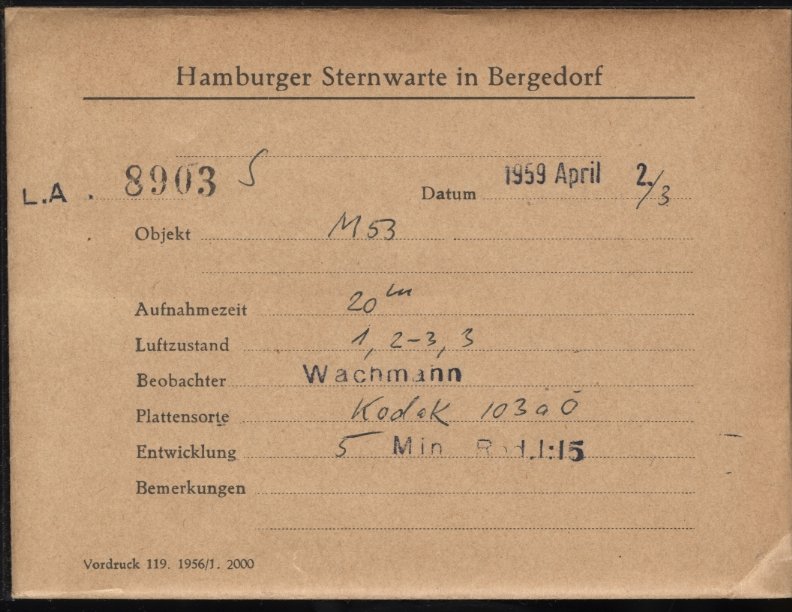 Hamburger Sternwarte in Bergedorf
L.A. 8903 S
Datum 1959 April 2./3
Objekt M53
Aufnahmezeit 20m
Luftzustand 1, 2-3, 3
Beobachter Wachmann
Plattensorte Kodak 103aO
Entwicklung 5 Min Rod.1:15
Bemerkungen
Vordruck 119. 1956/1. 2000